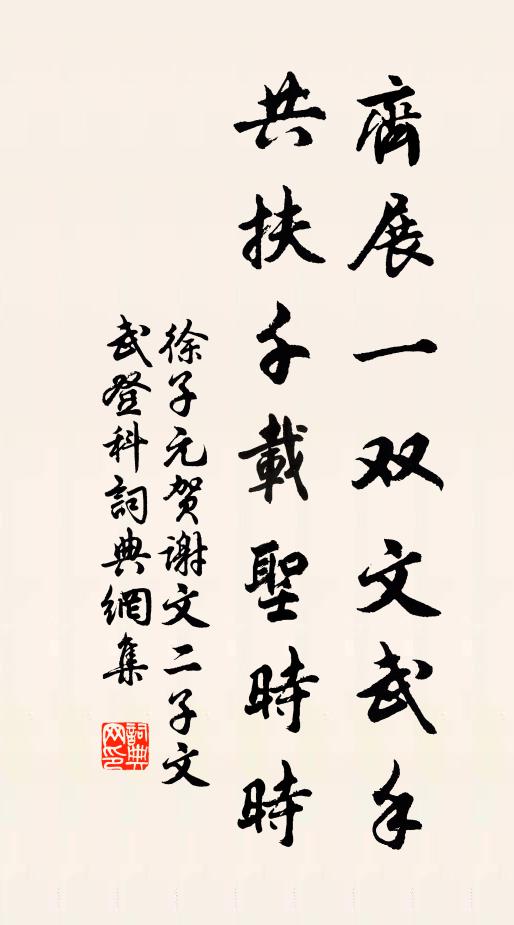 齊展一双文武手
共扶千載聖時時
徐子元贺謝文二子文
武登科詞典網集
詞典网印